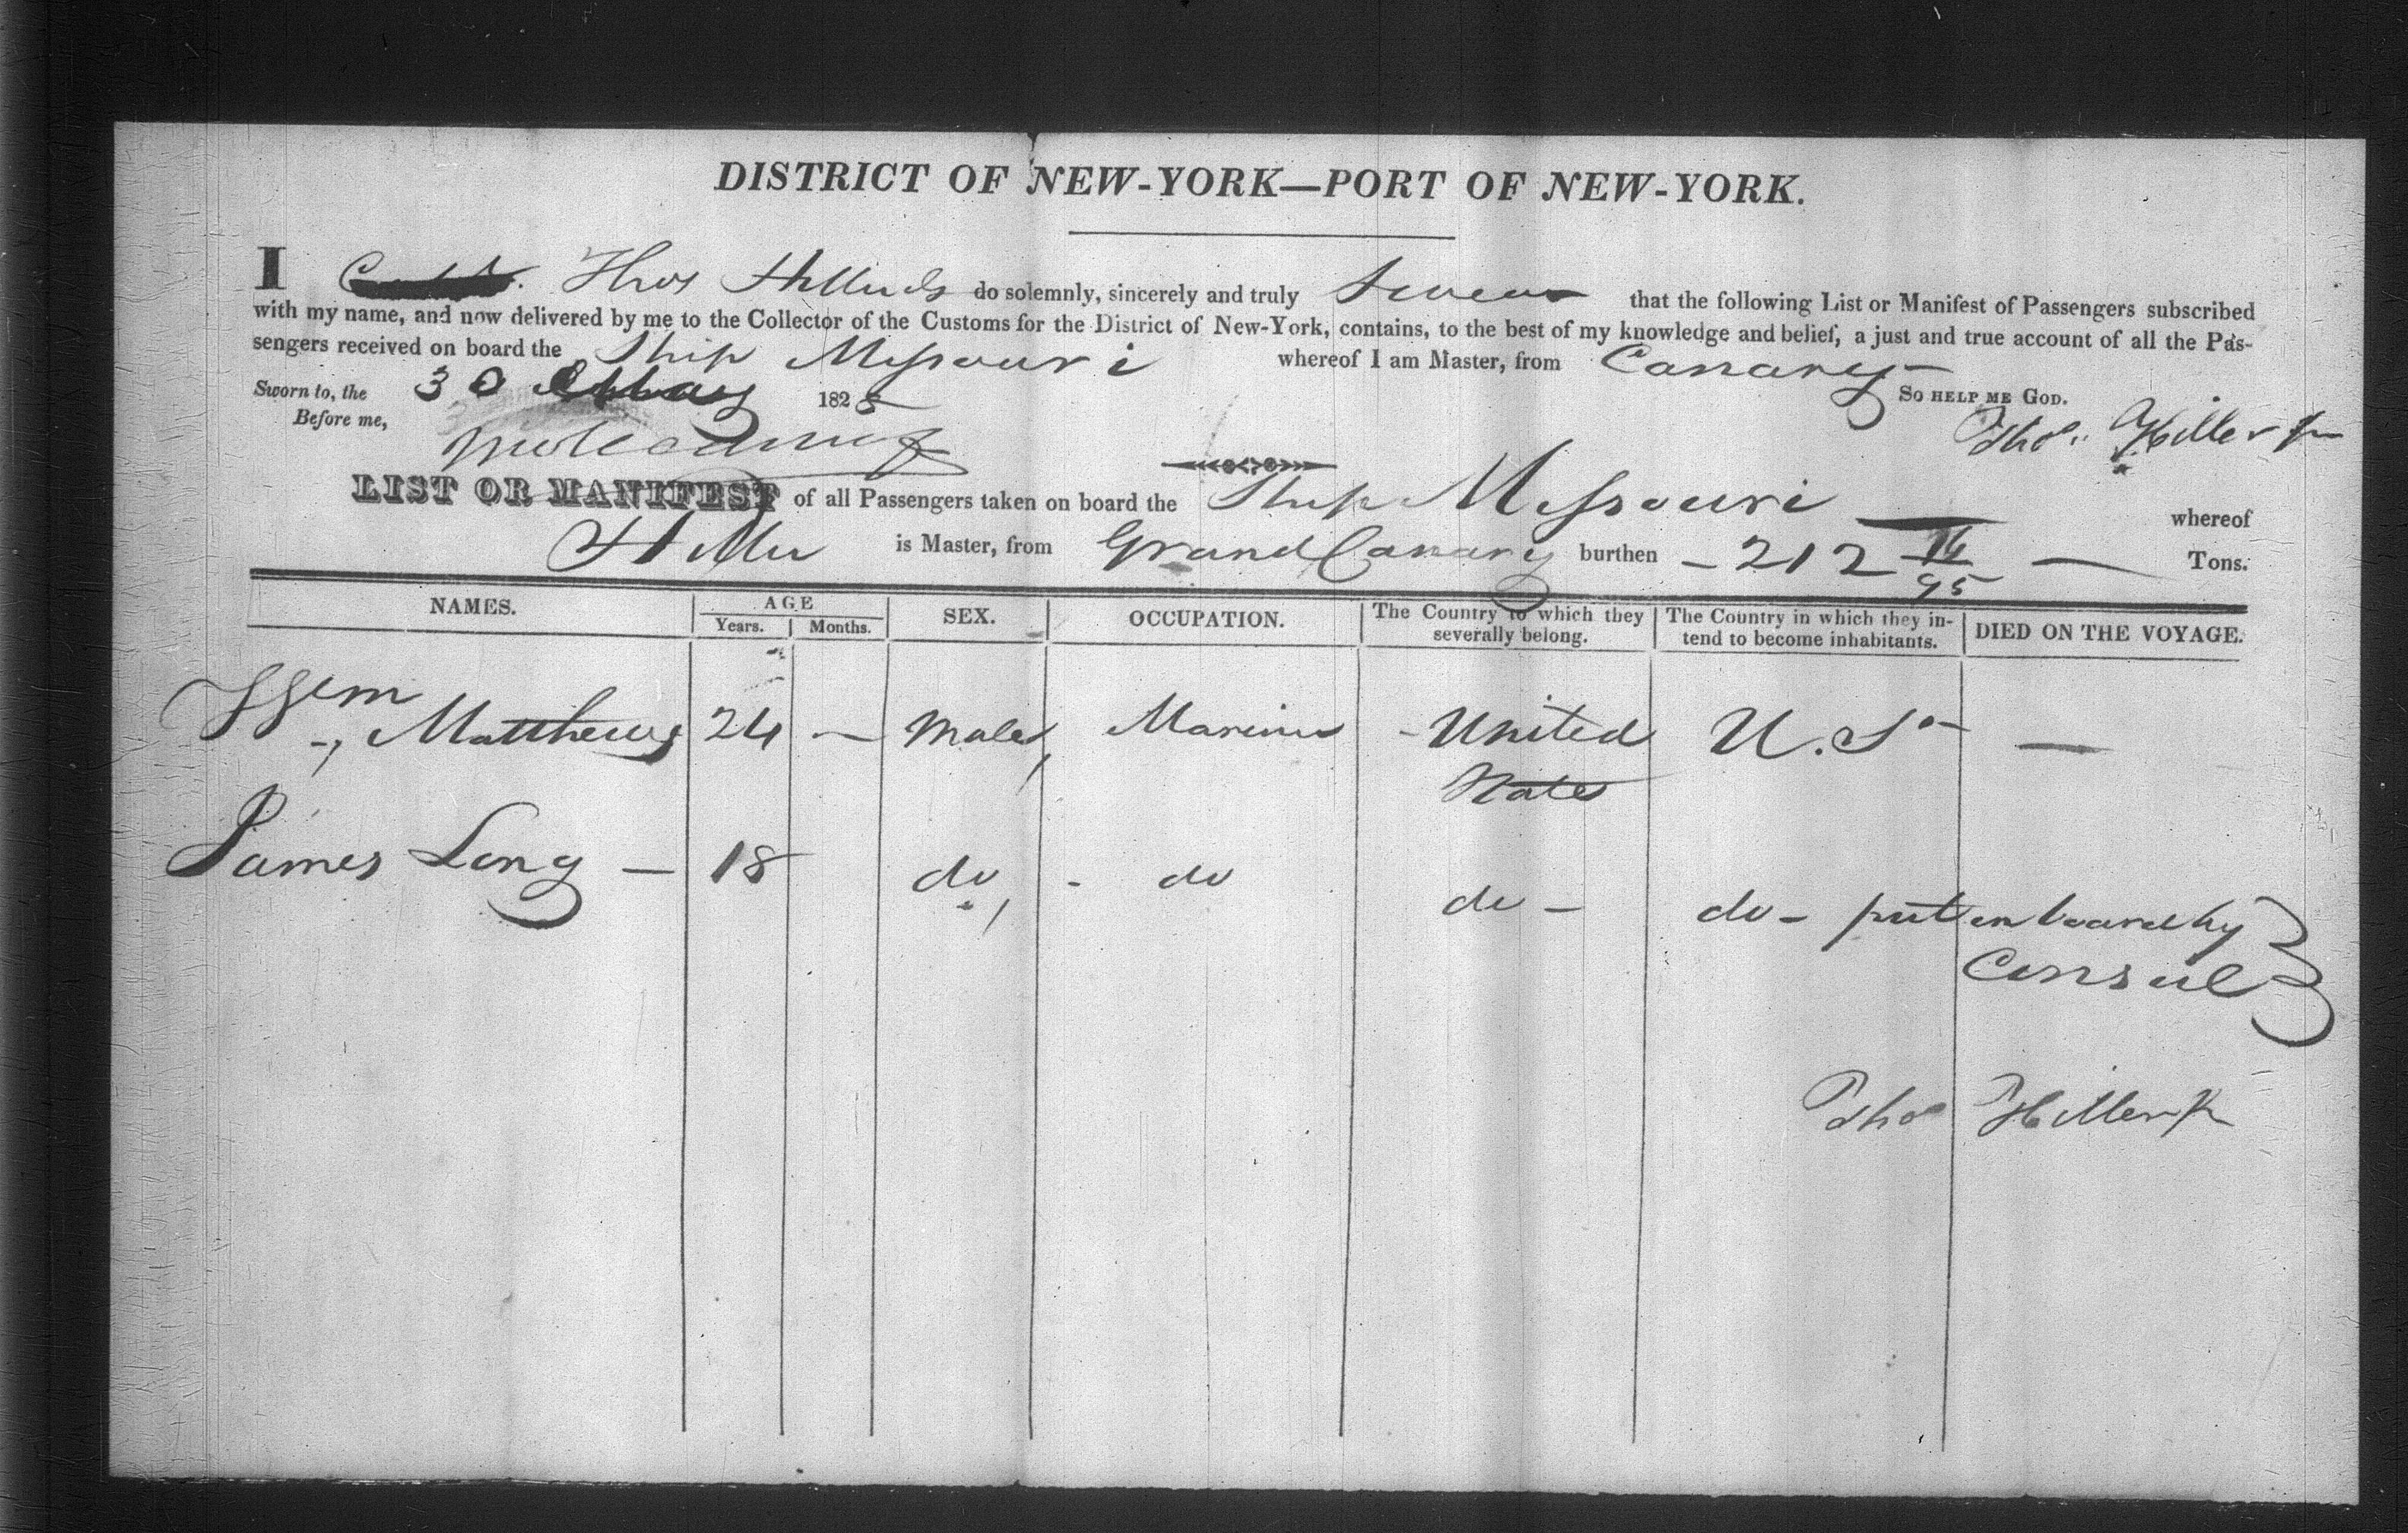 DISTRICT OF NEW-YORK—PORT OF NEW-YORK.
I Thos do solemnly, sincerely and truly Swear that the following List or Manifest of Passengers subscribed
with my name, and now delivered by me to the Collector of the Customs for the District of New-York, contains, to the best of my knowledge and belief, a just and true account of all the Pas-
sengers received on board the Ship Missouri whereof I am Master, from Canary
Sworn to, the 30 May 1825 So HELP ME GOD.
Before me, Thos Hiller Jr
LIST OR MANIFEST of all Passengers taken on board the Ship Missouri whereof
Hiller is Master, from Grand Canary burthen - 212 /95 Tons.
NAMES. AGE SEX. OCCUPATION. The Country to which they severally belong. The Country in which they in-tend to become inhabitants. DIED ON THE VOYAGE.
Years. Months.
Wm Matthews 24 — Male, Mariner - United U.S. —
States
James Long — 18 do, - do do - do - put on board by
Consul
Thos Hiller Jr